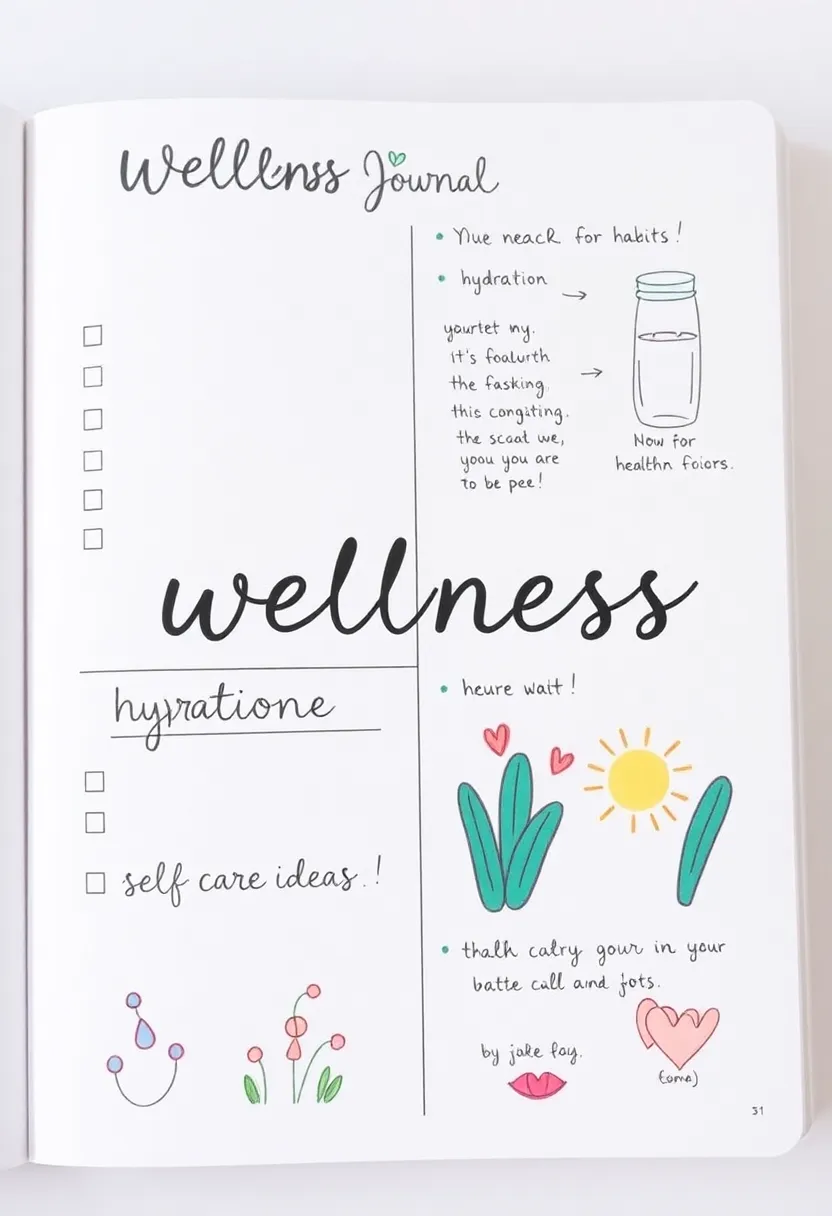 Welllnss Journal
• Yiue neack for habits!
• hydration
yourtet my.
it's foalurth
the fasking
this congiting.
the scoat we,
yoou you are
to be pee!
Now for
healthn foiors.
wellness
hyratione
self care ideas.!
• heure wait!
• thalh catry gour in your
batte call and fots.
by jake fay.
31